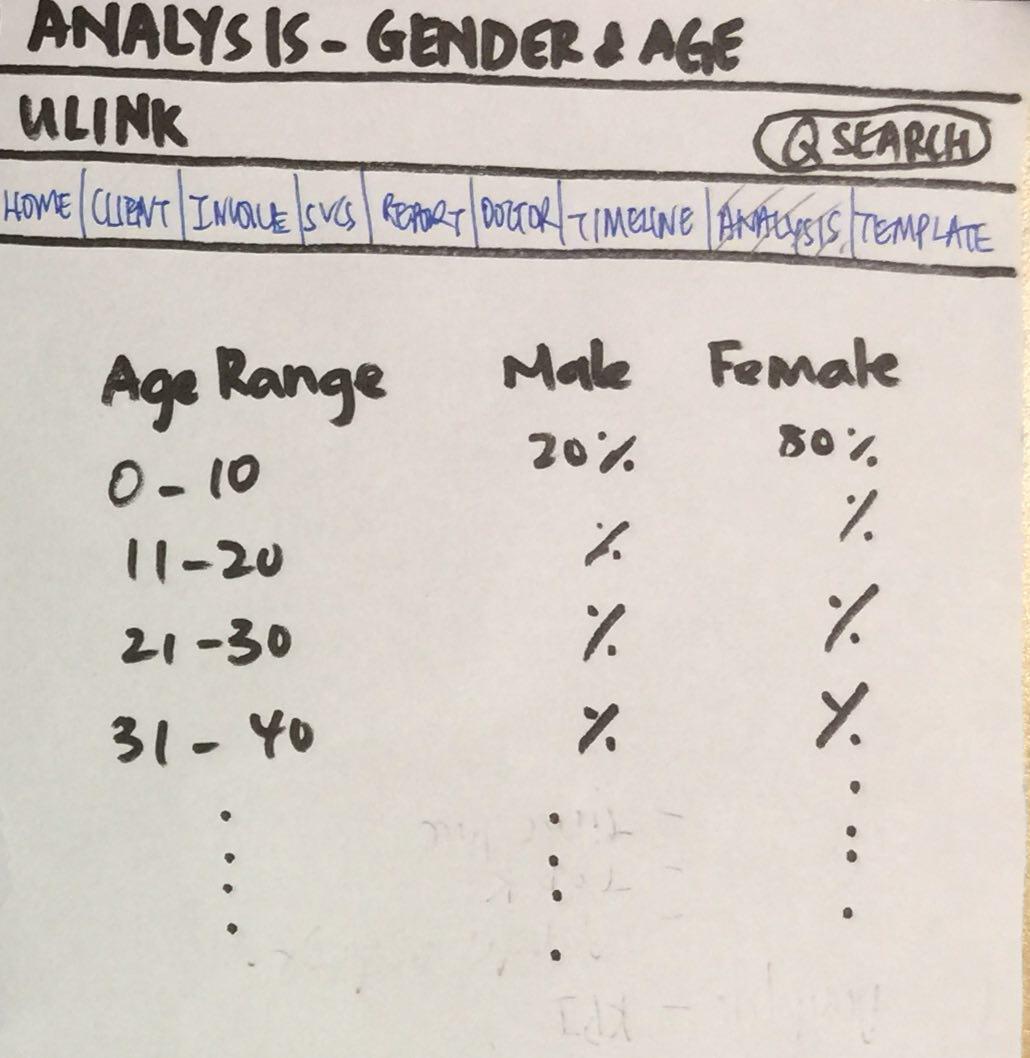 ANALYSIS - GENDER & AGE
ULINK
SEARCH
HOME CLIENT INVOICE SVCS REPORT DOCTOR TIMELINE ANALYSIS TEMPLATE
Age Range Male Female
0 - 10 20% 80%
11 - 20 % %
21 - 30 % %
31 - 40 % %